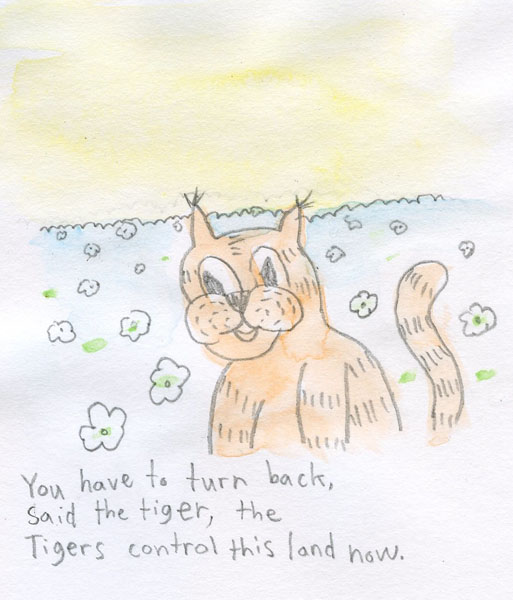 You have to turn back,
said the tiger, the
Tigers control this land now.